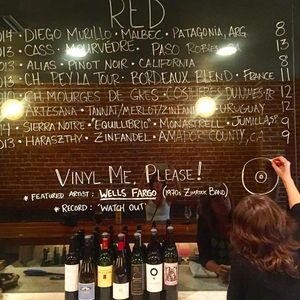 RED
2014 • DIEGO MURILLO • MALBEC • PATAGONIA, ARG. 8
2013 • CASS • MOURVÉDRE • PASO ROBLES 13
2013 • ALIAS • PINOT NOIR • CALIFORNIA 8
2013 • CH. PEY LA TOUR • BORDEAUX BLEND • FRANCE 11
CH. MOURGES DE GRES • COSTIÈRES 12
ARTESANA • TANNAT/MERLOT/ZINFANDEL • URUGUAY 12
2014 • SIERRA NORTE • "EQUILIBRIO" • MONASTRELL • JUMILLA, SP. 9
2013 • HARASZTHY • ZINFANDEL • AMADOR COUNTY, CA 9
VINYL ME, PLEASE!
* FEATURED ARTIST: WELLS FARGO (1970s ZIMROCK BAND)
* RECORD: 'WATCH OUT'